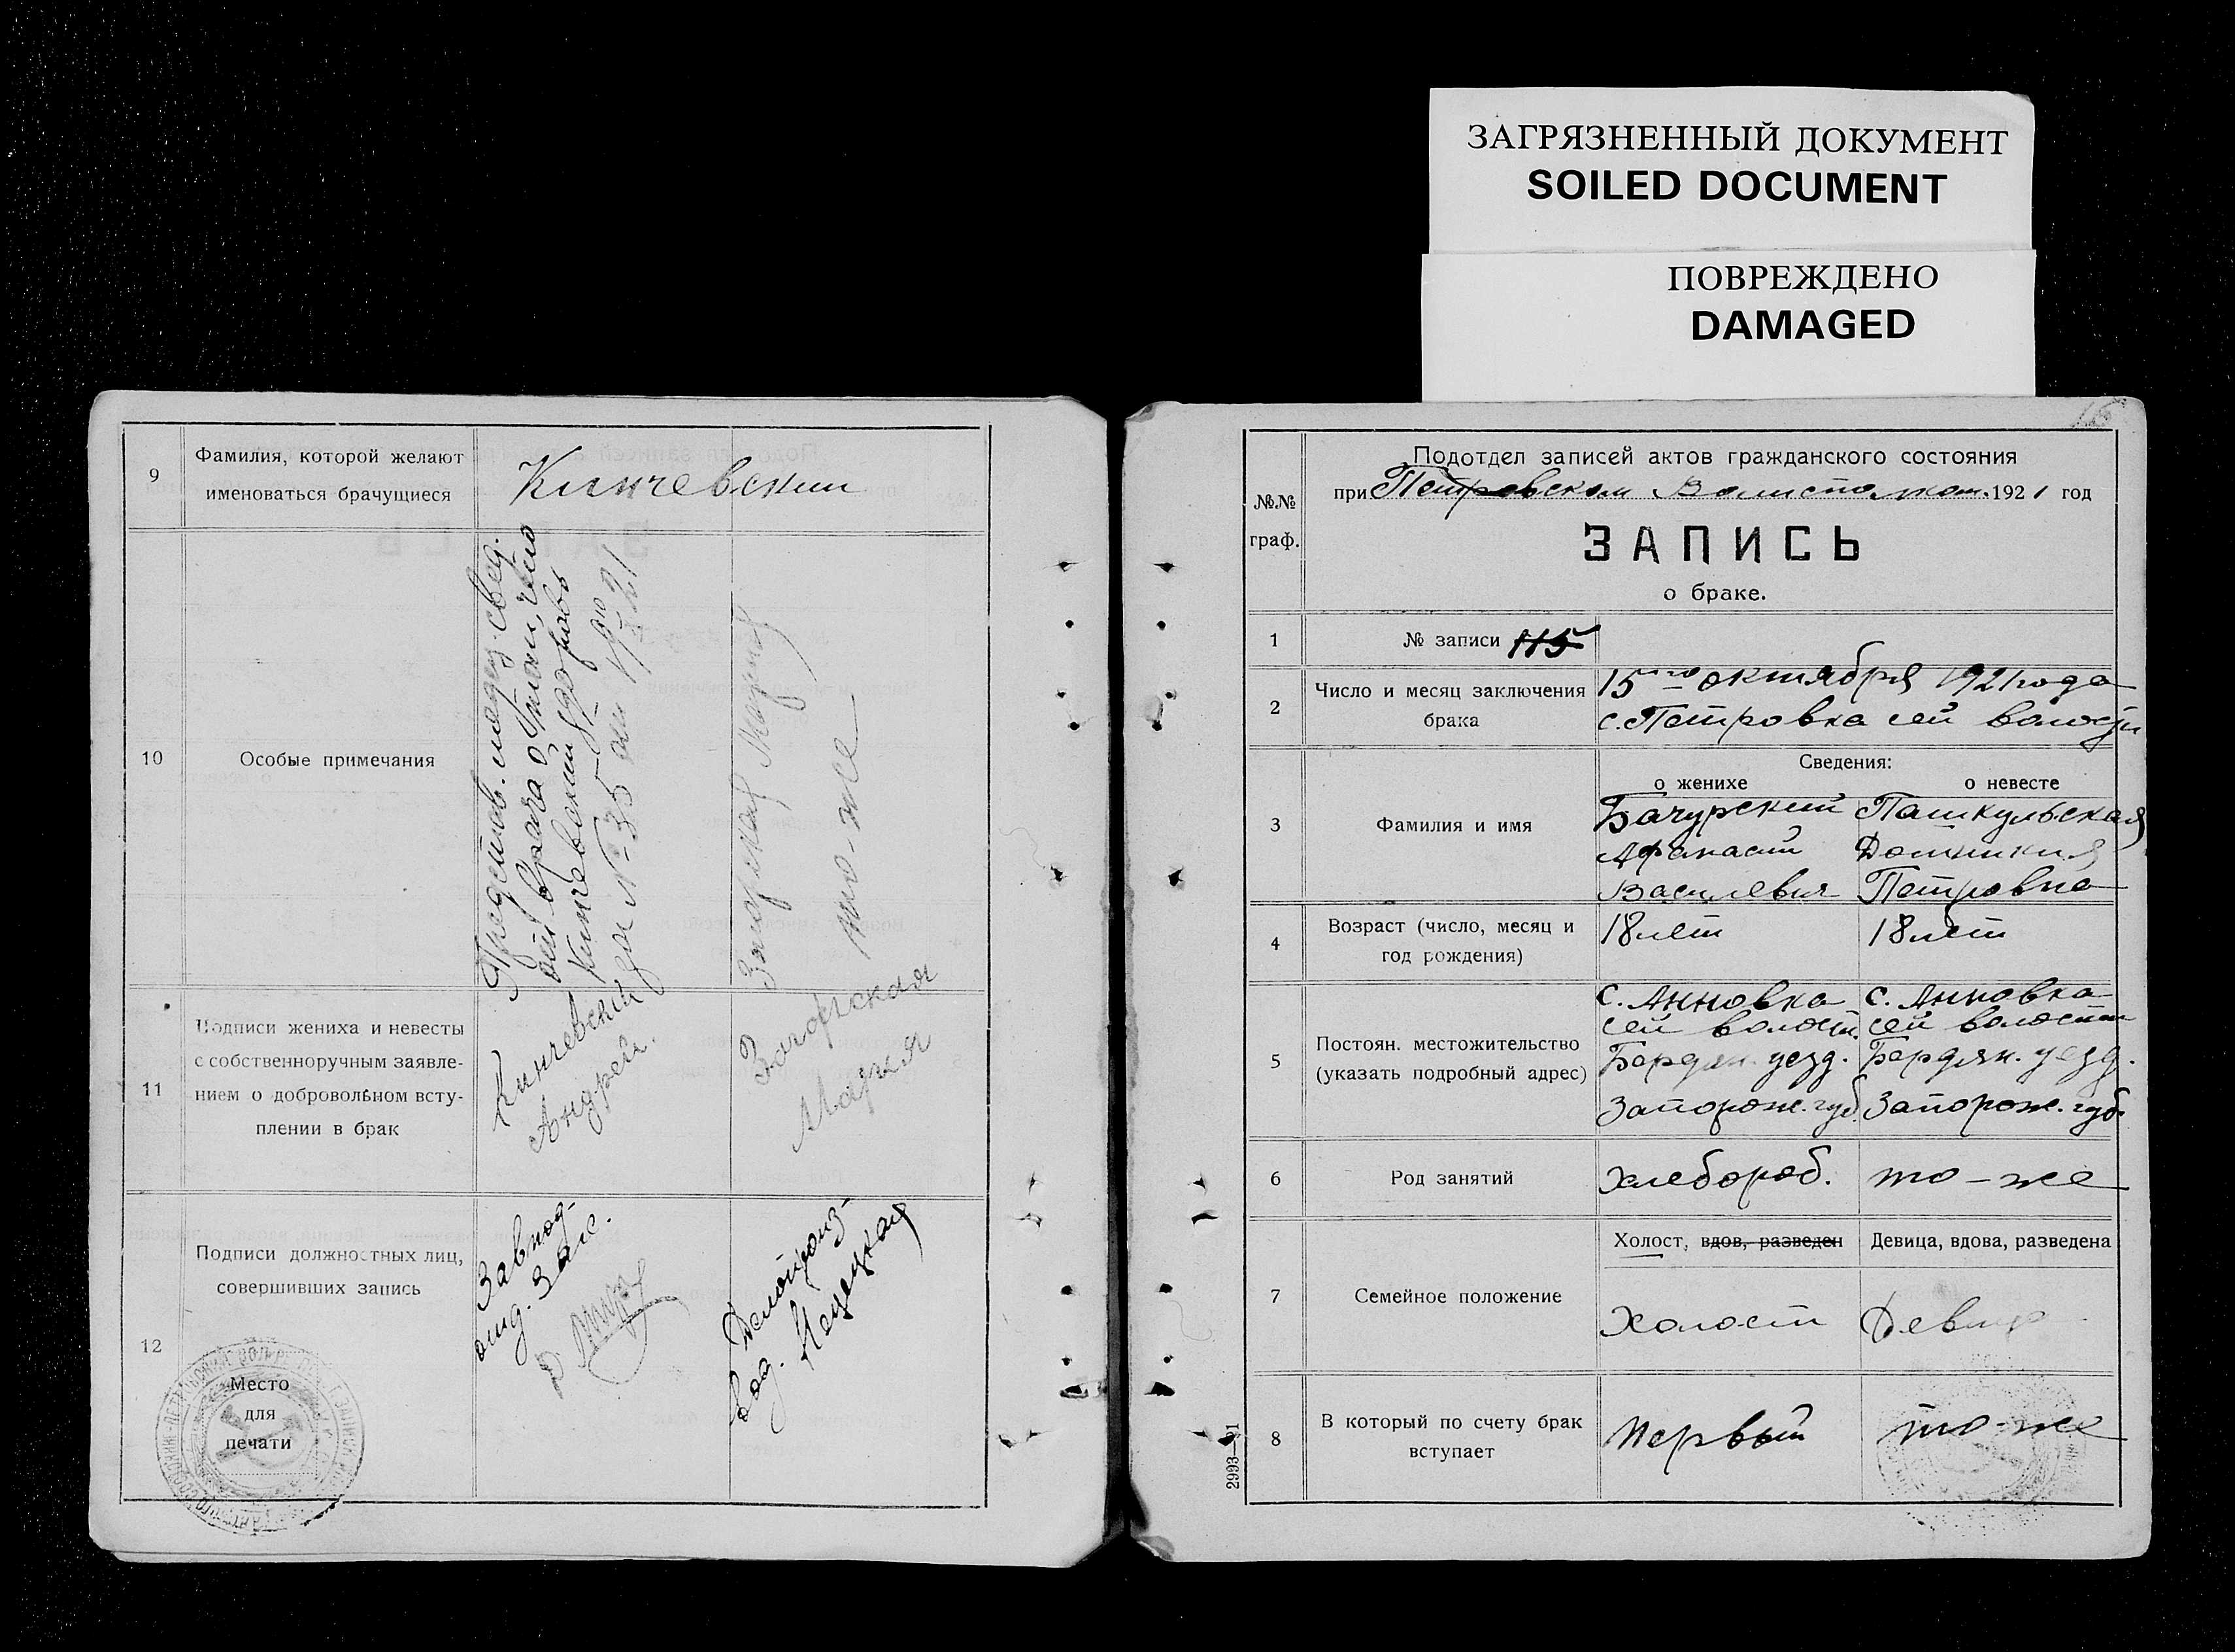 ЗАГРЯЗНЕННЫЙ ДОКУМЕНТ
SOILED DOCUMENT
ПОВРЕЖДЕНО
DAMAGED
9
Фамилия, которой желают
именоваться брачущиеся
Кинчевский
10
Особые примечания
Представ. медиц. свед.
от врача о том, что
Кинчевский здоровъ
за № 35 от
Загорская Мария
то-же
11
Подписи жениха и невесты
с собственноручным заявле-
нием о добровольном всту-
плении в брак
Кинчевский
Андрей.
Загорская
Мария
12
Подписи должностных лиц,
совершивших запись
Место
для
печати
Завпод-
отд. Загс.
Делопроиз-
вод.
№№
граф.
Подотдел записей актов гражданского состояния
при Петровском Волисполком. 1921 год
ЗАПИСЬ
о браке.
1
№ записи 115
2
Число и месяц заключения
брака
15го октября 1921 года
с. Петровка сей волости
3
Фамилия и имя
Сведения:
о женихе
о невесте
Бачурский Пашкульская
Афанасий
Василевич Петровна
4
Возраст (число, месяц и
год рождения)
18 лет
18 лет
5
Постоян. местожительство
(указать подробный адрес)
с. Анновка с. Анновка
сей волости. сей волости
Бердян. уезд. Бердян. уезд.
Запорож. губ. Запорож. губ.
6
Род занятий
хлебороб.
то-же
7
Семейное положение
Холост, вдов, разведен
Девица, вдова, разведена
Холост
Девица
8
В который по счету брак
вступает
Первый
то-же
2993—21